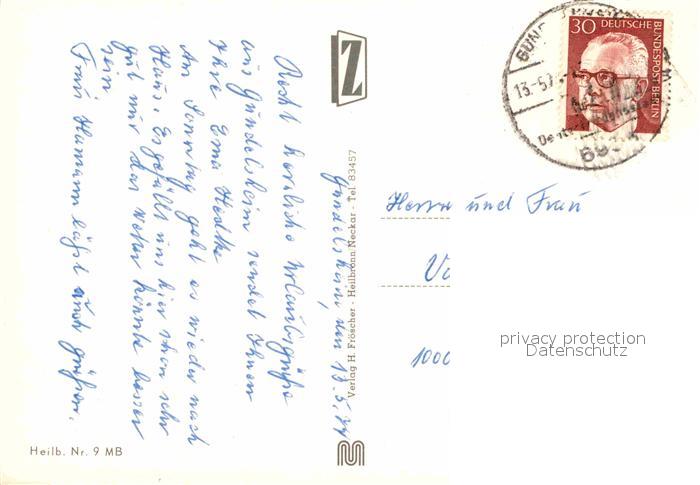 Gundelsheim, den 13.5.74
Recht herzliche Urlaubsgrüße
aus Gundelsheim sendet Ihnen
Ihre Erna
Am Sonntag geht es wieder nach
Haus. Es gefällt uns hier schon sehr
gut nur das Wetter könnte besser
sein
Frau Hamann läßt auch grüßen.
Z
Verlag H. Fröscher - Heilbronn/Neckar - Tel. 83457
Heilb. Nr. 9 MB
30 DEUTSCHE
BUNDESPOST BERLIN
GUND
13.-5.7
69
Herrn und Frau
1000
privacy protection
Datenschutz